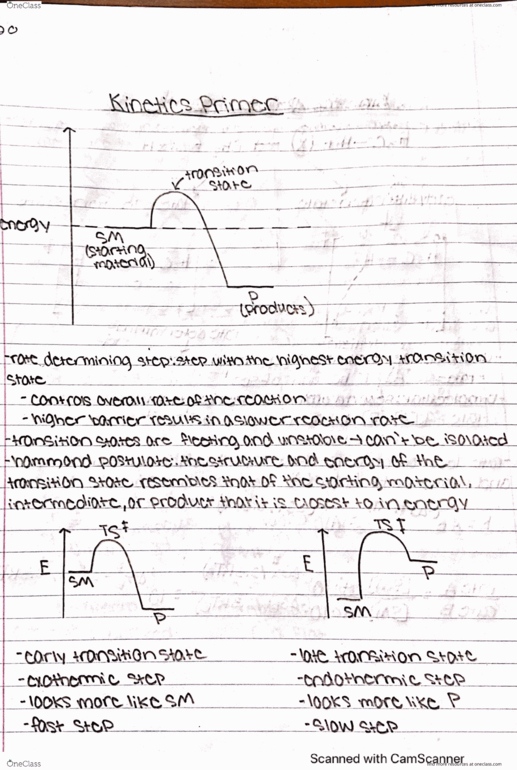 OneClass
Kinetics Primer
transition
state
energy
SM
(starting
material)
P
(products)
-rate determining step: step with the highest energy transition
state
- controls overall rate of the reaction
- higher barrier results in a slower reaction rate
-transition states are fleeting and unstable → can't be isolated
-hammond postulate: the structure and energy of the
transition state resembles that of the starting material,
intermediate, or product that it is closest to in energy
TS‡
E
SM
P
TS‡
E
SM
P
-early transition state
-exothermic step
-looks more like SM
-fast step
-late transition state
-endothermic step
-looks more like P
-slow step
Scanned with CamScanner
OneClass